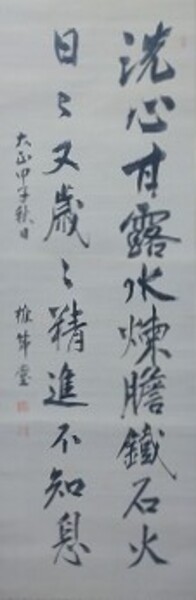 洗心甘露水煉膽鐵石火
日〻又歲〻精進不知息
大正甲子秋日